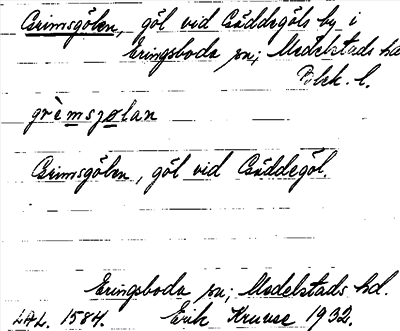 Grimsgölen, göl vid Gäddegöls by i
Eringsboda sn; Medelstads hd
Blek. l.
grèmsjolan
Grimsgölen, göl vid Gäddegöl.
Eringsboda sn; Medelstads hd.
LAL. 1584. Erik Kruuse 1932.